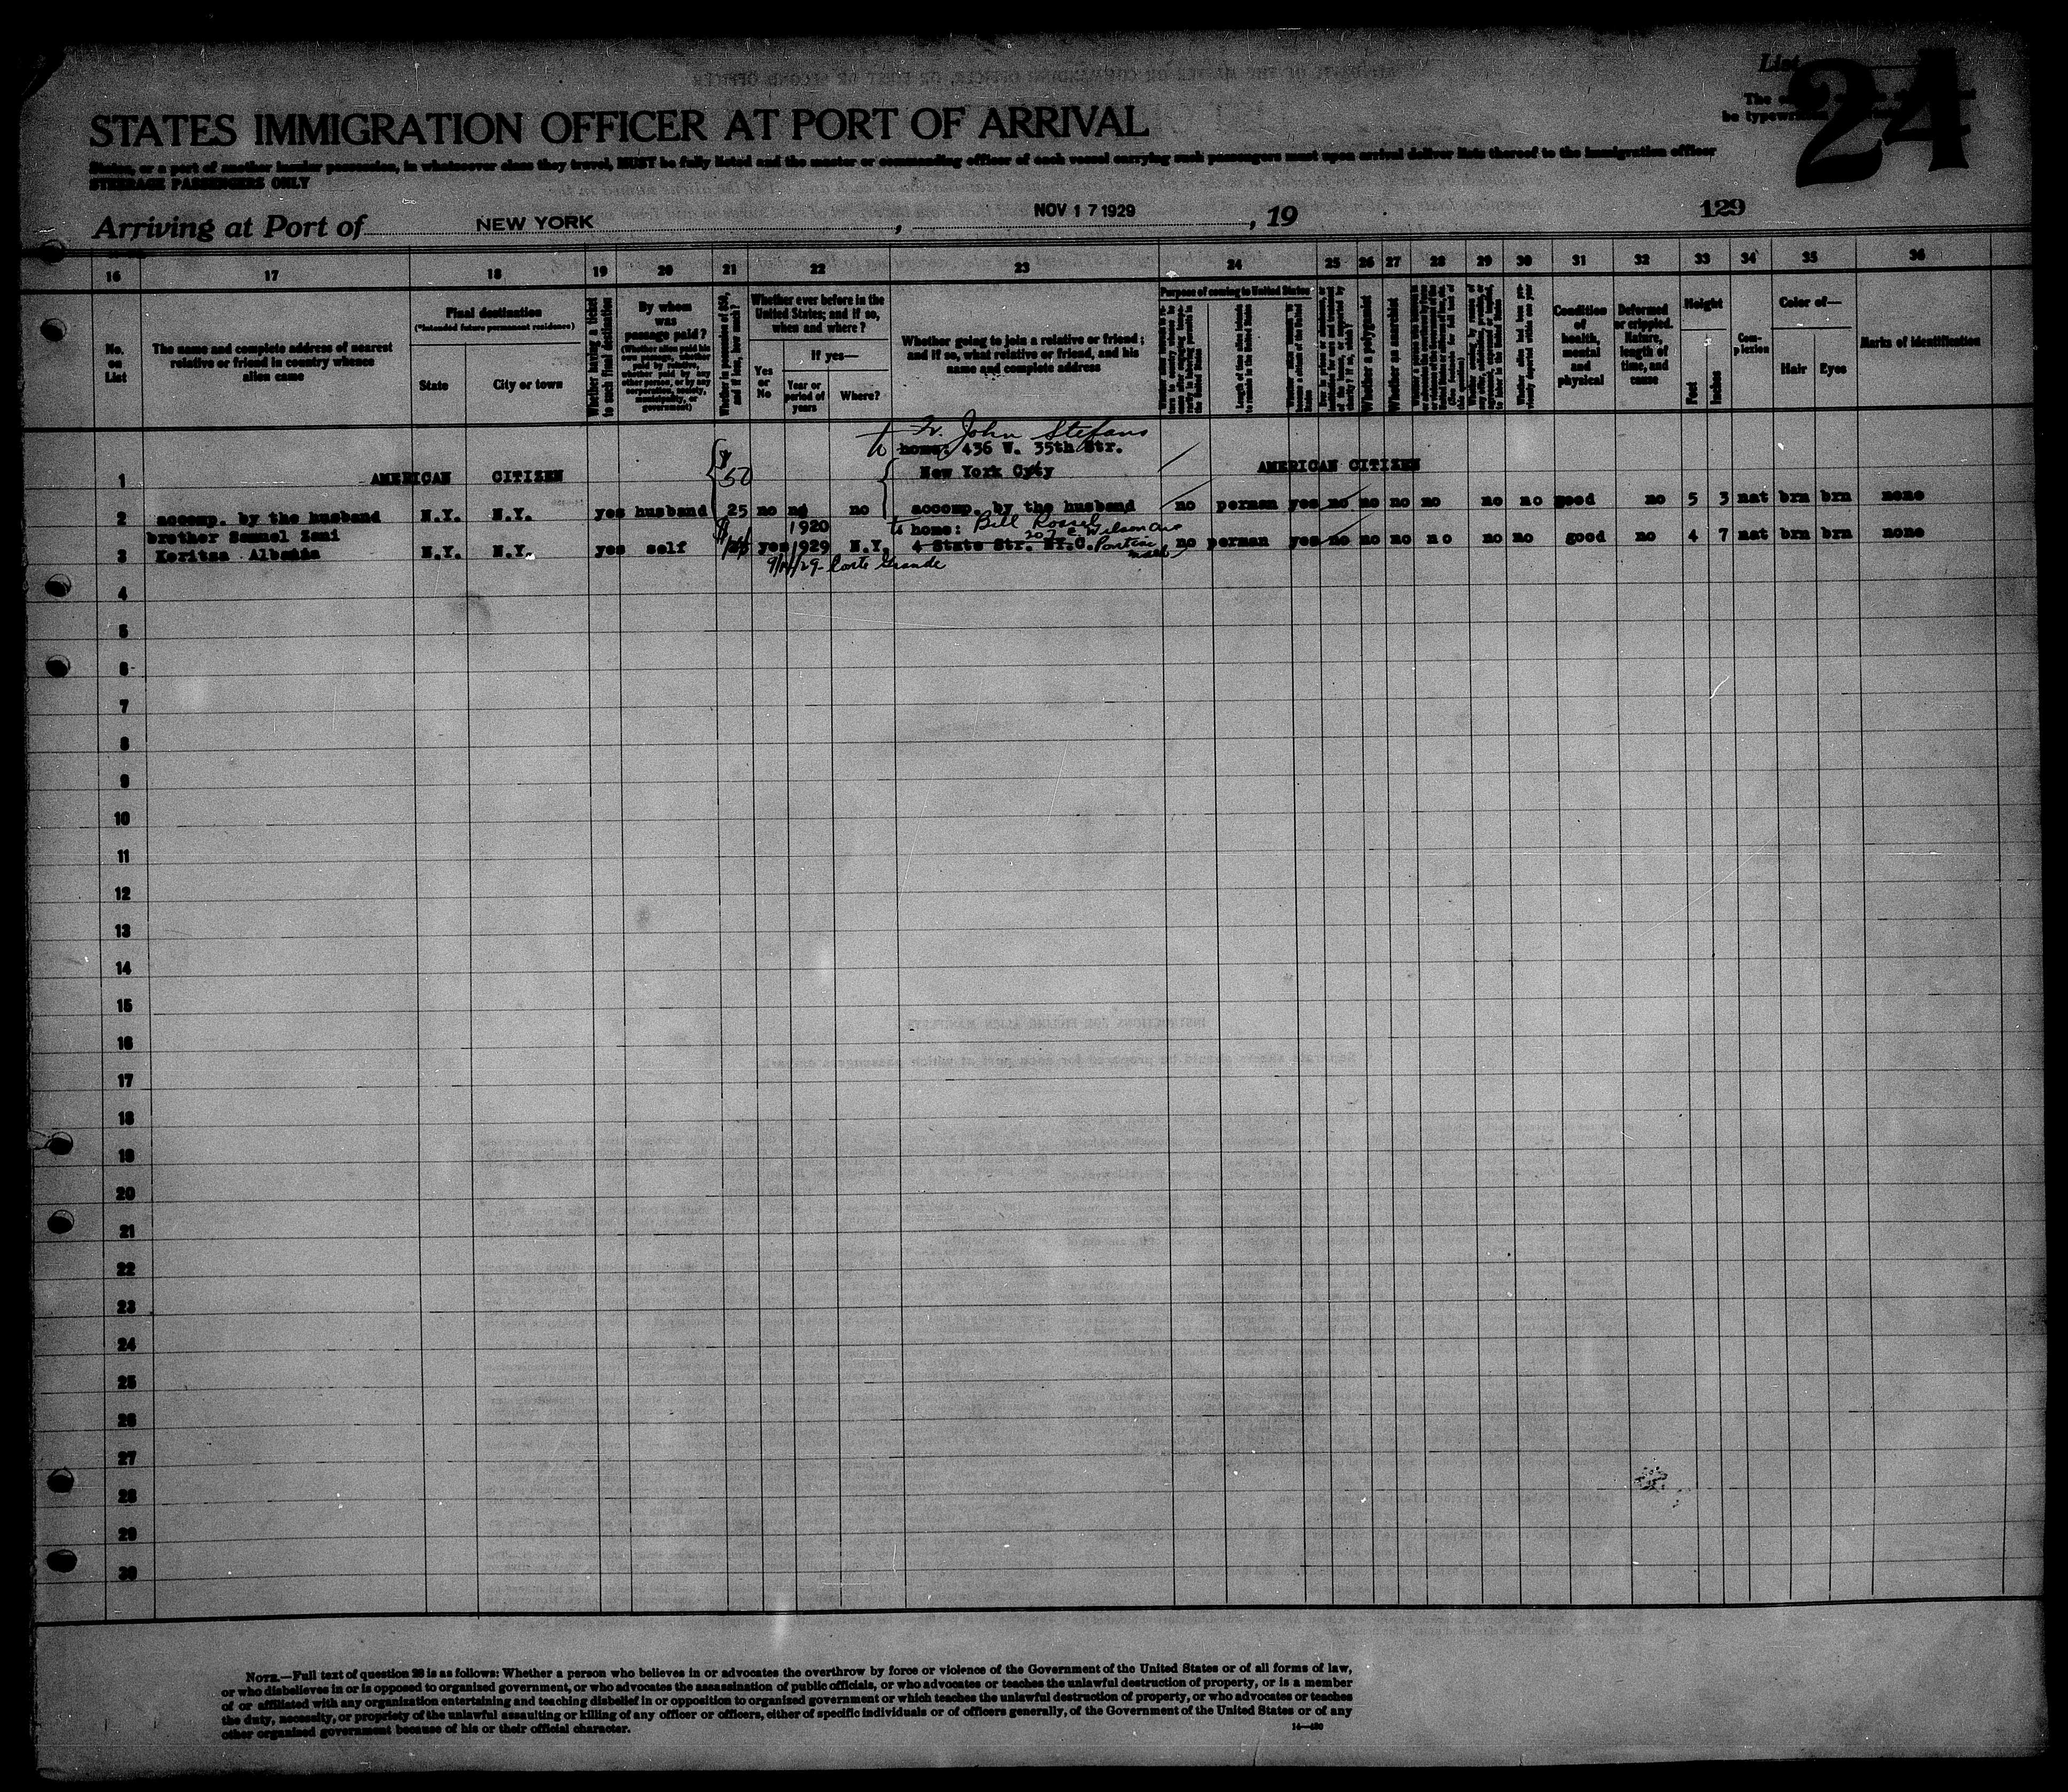 List
24
STATES IMMIGRATION OFFICER AT PORT OF ARRIVAL
The
be
States, or a port of another insular possession, in whatsoever class they travel, MUST be fully listed and the master or commanding officer of each vessel carrying such passengers must upon arrival deliver lists thereof to the immigration officer
STEERAGE PASSENGERS ONLY
Arriving at Port of NEW YORK, NOV 17 1929, 19
129
16 17 18 19 20 21 22 23 24 25 26 27 28 29 30 31 32 33 34 35 36
No. on List
The name and complete address of nearest relative or friend in country whence alien came
Final destination
(*Intended future permanent residence)
State
City or town
Whether having a ticket to such final destination
By whom was passage paid?
(Whether alien paid his own passage, whether paid by relative, whether paid by any other person, or by any corporation, society, municipality, or government)
Whether in possession of $50, and if less, how much?
Whether ever before in the United States; and if so, when and where?
Yes or No
If yes—
Year or period of years
Where?
Whether going to join a relative or friend; and if so, what relative or friend, and his name and complete address
Purpose of coming to United States
Whether a polygamist
Whether an anarchist
Condition of health, mental and physical
Deformed or crippled. Nature, length of time, and cause
Height
Feet
Inches
Complexion
Color of—
Hair
Eyes
Marks of identification
Fr. John Stefans
home: 436 W. 35th Str.
1 AMERICAN CITIZEN $ 50 New York City AMERICAN CITIZEN
2 accomp. by the husband N.Y. N.Y. yes husband 25 no no no accomp. by the husband no perman yes no no no no no no good no 5 3 nat brn brn none
brother Samuel Zeni 1920 home: Bill Rossel
207 E. Wilson Ave
3 Koritza Albania N.Y. N.Y. yes self yes 1929 N.Y. 4 State Str. NY.C. Pontiac no perman yes no no no no no no good no 4 7 nat brn brn none
4
5
6
7
8
9
10
11
12
13
14
15
16
17
18
19
20
21
22
23
24
25
26
27
28
29
30
NOTE.—Full text of question 28 is as follows: Whether a person who believes in or advocates the overthrow by force or violence of the Government of the United States or of all forms of law,
or who disbelieves in or is opposed to organized government, or who advocates the assassination of public officials, or who advocates or teaches the unlawful destruction of property, or is a member
of or affiliated with any organization entertaining and teaching disbelief in or opposition to organized government or which teaches the unlawful destruction of property, or who advocates or teaches
the duty, necessity, or propriety of the unlawful assaulting or killing of any officer or officers, either of specific individuals or of officers generally, of the Government of the United States or of any
other organized government because of his or their official character.
14—430